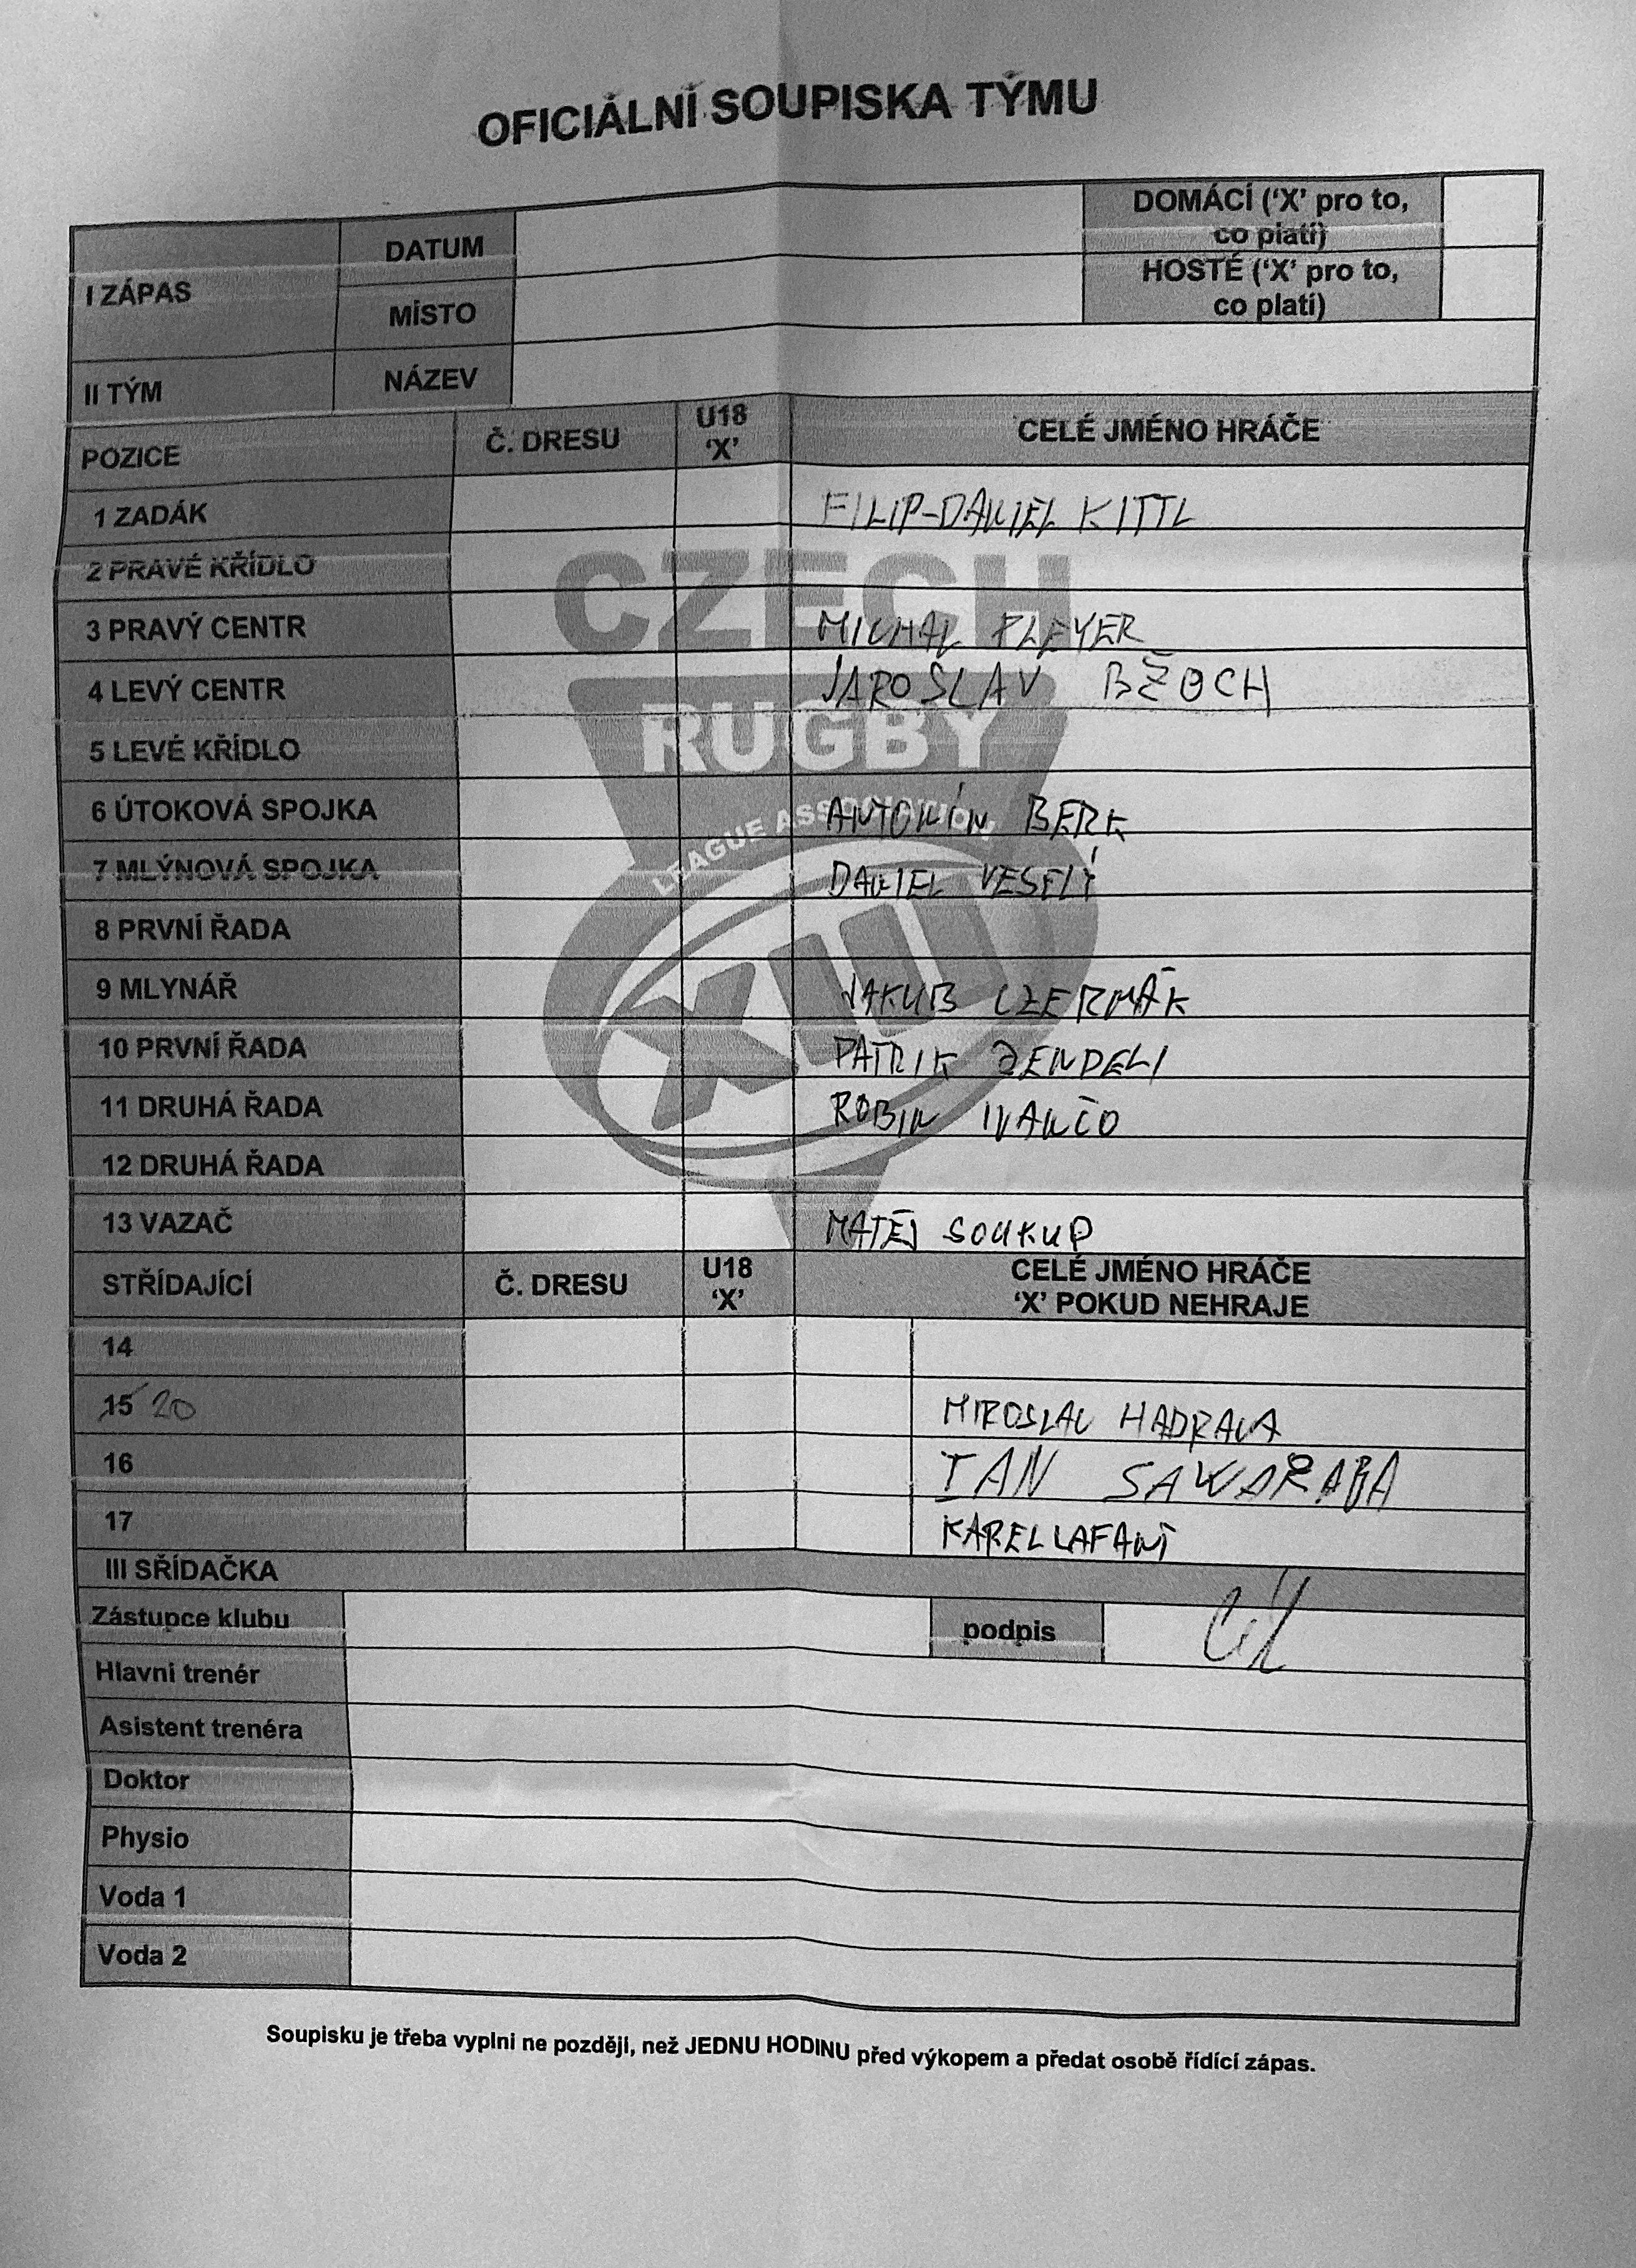 OFICIÁLNÍ SOUPISKA TÝMU
I ZÁPAS
DATUM
DOMÁCÍ (‘X’ pro to,
co platí)
MÍSTO
HOSTÉ (‘X’ pro to,
co platí)
II TÝM
NÁZEV
POZICE
Č. DRESU
U18
‘X’
CELÉ JMÉNO HRÁČE
1 ZADÁK
FILIP-DANIEL KITTL
2 PRAVÉ KŘÍDLO
CZECH
3 PRAVÝ CENTR
MICHAL PLEYER
4 LEVÝ CENTR
JAROSLAV BŽOCH
RUGBY
5 LEVÉ KŘÍDLO
6 ÚTOKOVÁ SPOJKA
ANTONÍN BERK
LEAGUE ASSOCIATION
7 MLÝNOVÁ SPOJKA
DANIEL VESELÝ
8 PRVNÍ ŘADA
XIII
9 MLYNÁŘ
JAKUB CZERMÁK
10 PRVNÍ ŘADA
PATRIK ZENDELI
11 DRUHÁ ŘADA
ROBIN IVANČO
12 DRUHÁ ŘADA
13 VAZAČ
MATĚJ SOUKUP
STŘÍDAJÍCÍ
Č. DRESU
U18
‘X’
CELÉ JMÉNO HRÁČE
‘X’ POKUD NEHRAJE
14
15 20
MIROSLAV HADRAVA
16
IAN
17
KAREL LAFANT
III SŘÍDAČKA
Zástupce klubu
podpis
Hlavni trenér
Asistent trenéra
Doktor
Physio
Voda 1
Voda 2
Soupisku je třeba vyplni ne později, než JEDNU HODINU před výkopem a předat osobě řídící zápas.